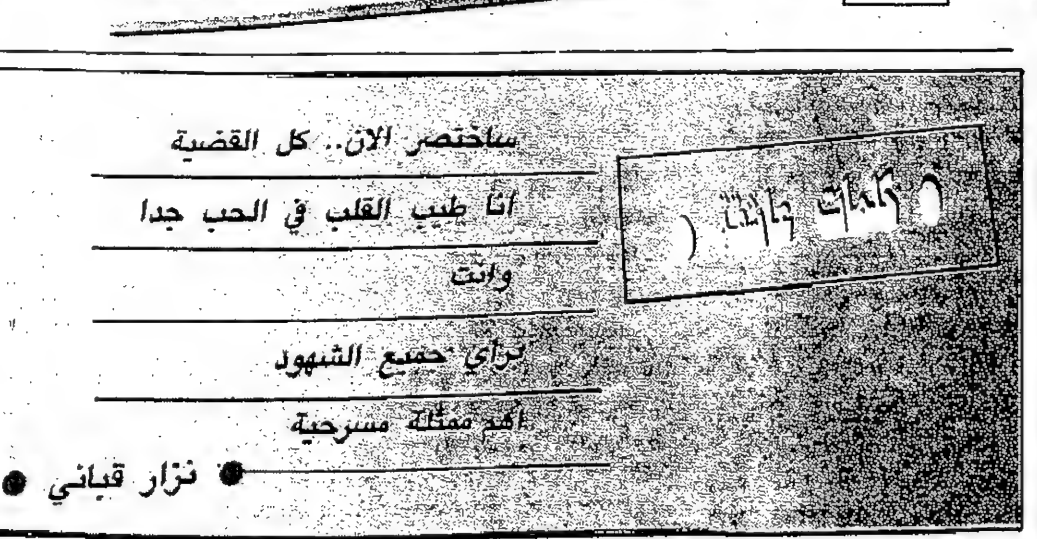 كلمات
ساختصر الان.. كل القضية
انا طيب القلب في الحب جدا
وانت
براي جميع الشهود
اهم ممثلة مسرحية
● نزار قباني ●